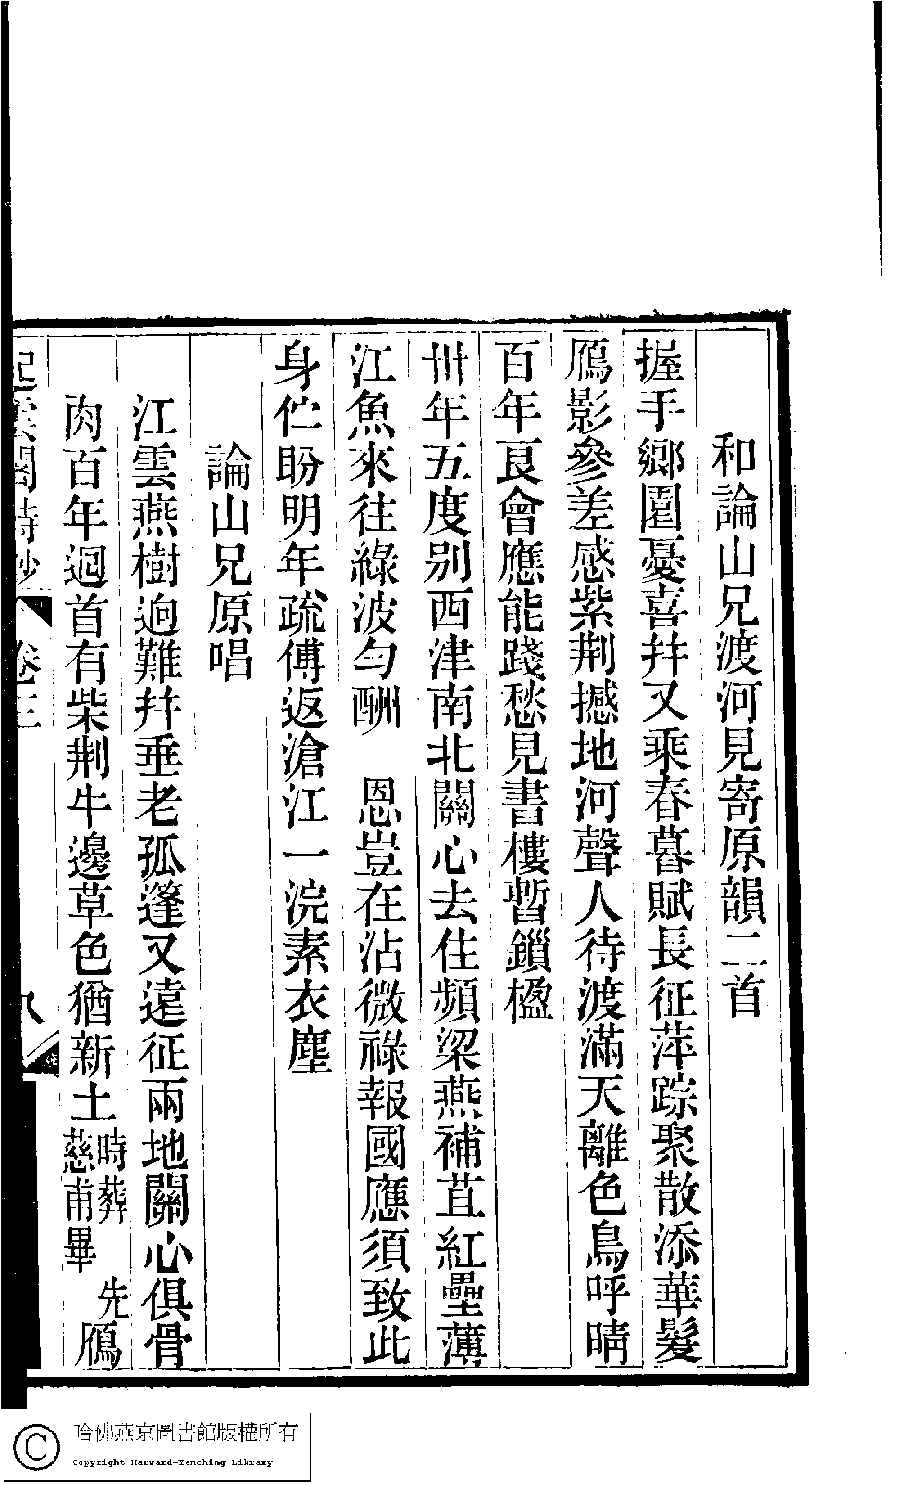 和論山兄渡河見寄原韻二首
握手鄉園憂喜幷又乘春暮賦長征萍踪聚散添華髮
鴈影參差感紫荆撼地河聲人待渡滿天離色鳥呼晴
百年良會應能踐愁見書樓暫鎖楹
卅年五度别西津南北關心去住頻梁燕補苴紅壘薄
江魚來往綠波勻酬　恩豈在沾微祿報國應須致此
身伫盼明年疏傅返滄江一浣素衣塵
論山兄原唱
江雲燕樹逈難幷垂老孤蓬又遠征兩地關心俱骨
肉百年迴首有柴荆牛邊草色猶新土時葬　先慈甫畢鴈
起雲閣詩鈔　卷三　八
哈佛燕京圖書館版權所有
Copyright Harvard-Yenching Library